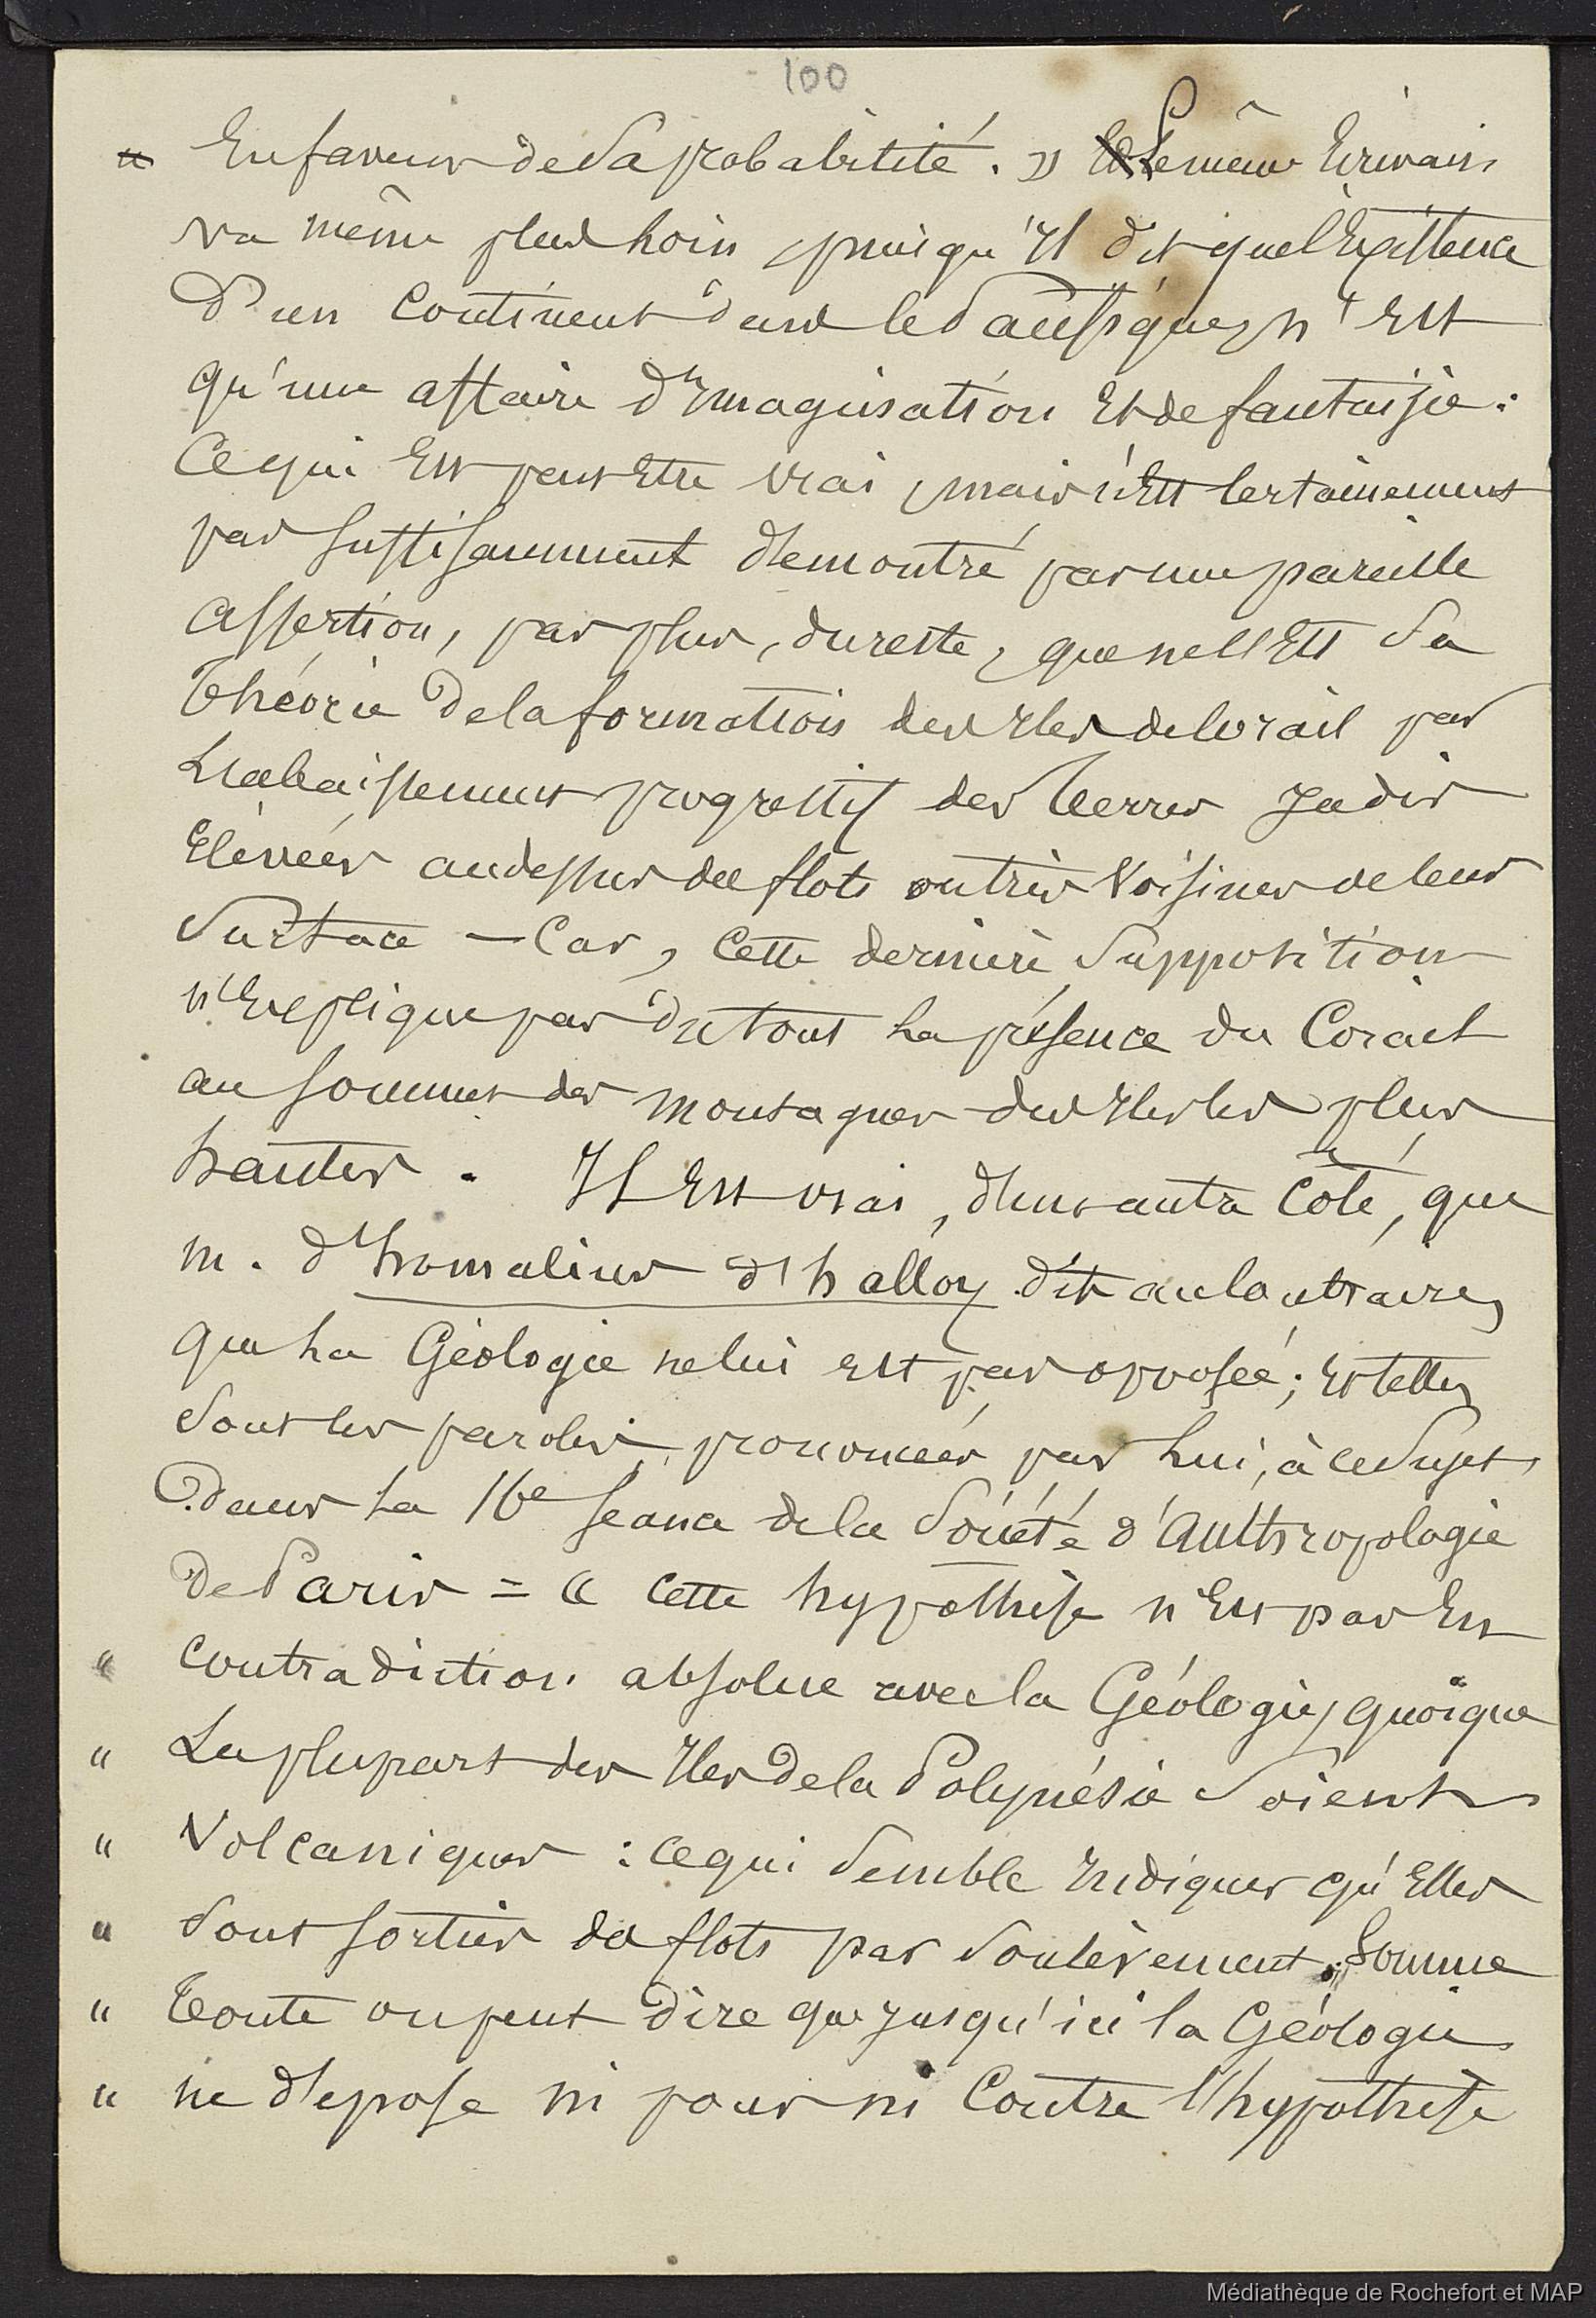 100
" En faveur de sa probabilité. » Le même Ecrivain
va même plus loin, puisqu'il dit que l'Existence
d'un Continent dans le Pacifique, n'Est
qu'une affaire d'Imagination Et de fantaisie :
Ce qui Est peut Etre vrai, mais n'Est Certainement
pas suffisamment démontré par une pareille
assertion, pas plus, du reste, que ne ll'Est Sa
Théorie de la formation des Iles de Corail par
L'abaissement progressif des Terres Jadis
Elévées au dessus des flots ou très Voisines de leur
Surface — Car, Cette dernière Supposition
n'Explique pas du tout La présence du Corail
au sommet des montagnes des Iles les plus
hautes. Il Est vrai, d'un autre Côté, que
m. d'homalius d'halloy dit au Contraire,
que La Géologie ne lui Est pas opposée ; Et telles
Sont les paroles prononcées par Lui, à ce Sujet
dans La 16e séance de la Société d'Anthropologie
de Paris = « Cette hypothèse n'Est pas En
" Contradiction absolue avec la Géologie, quoique
" La plupart des Iles de la Polynésie Soient
" Volcaniques : ce qui Semble Indiquer qu'Elles
" Sont sorties des flots par Soulèvement. Somme
" Toute on peut dire que jusqu'ici la Géologie
" ne dépose ni pour ni Contre l'hypothèse
Médiathèque de Rochefort et MAP